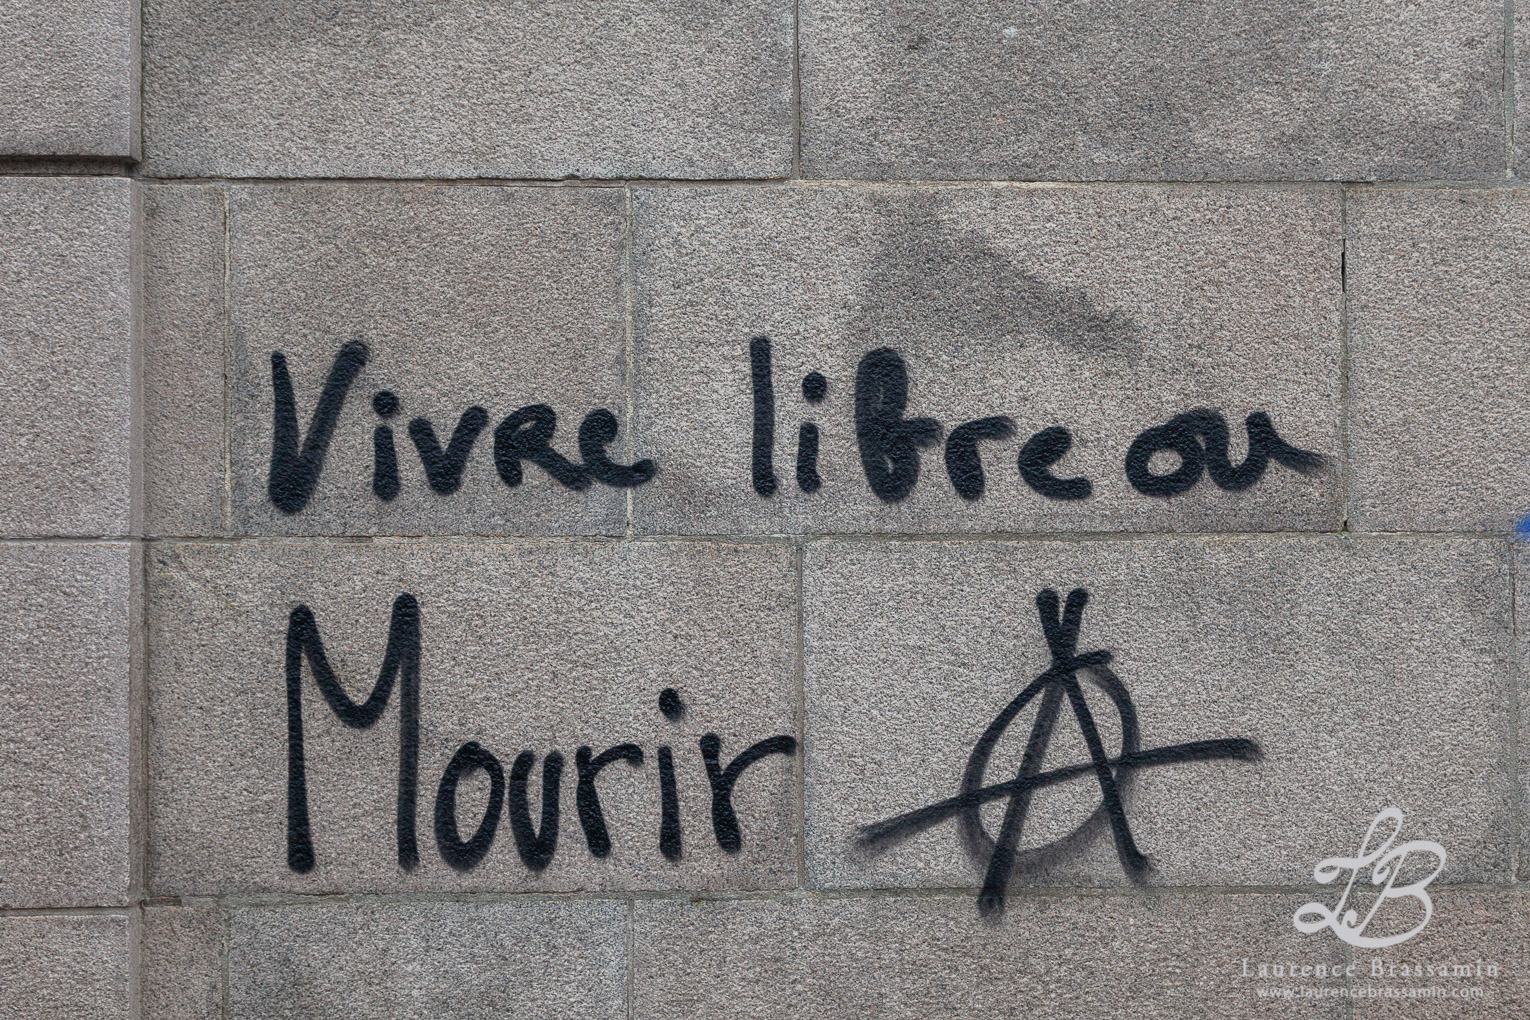 Vivre libre ou
Mourir Ⓐ
LB
Laurence Brassamin
www.laurencebrassamin.com